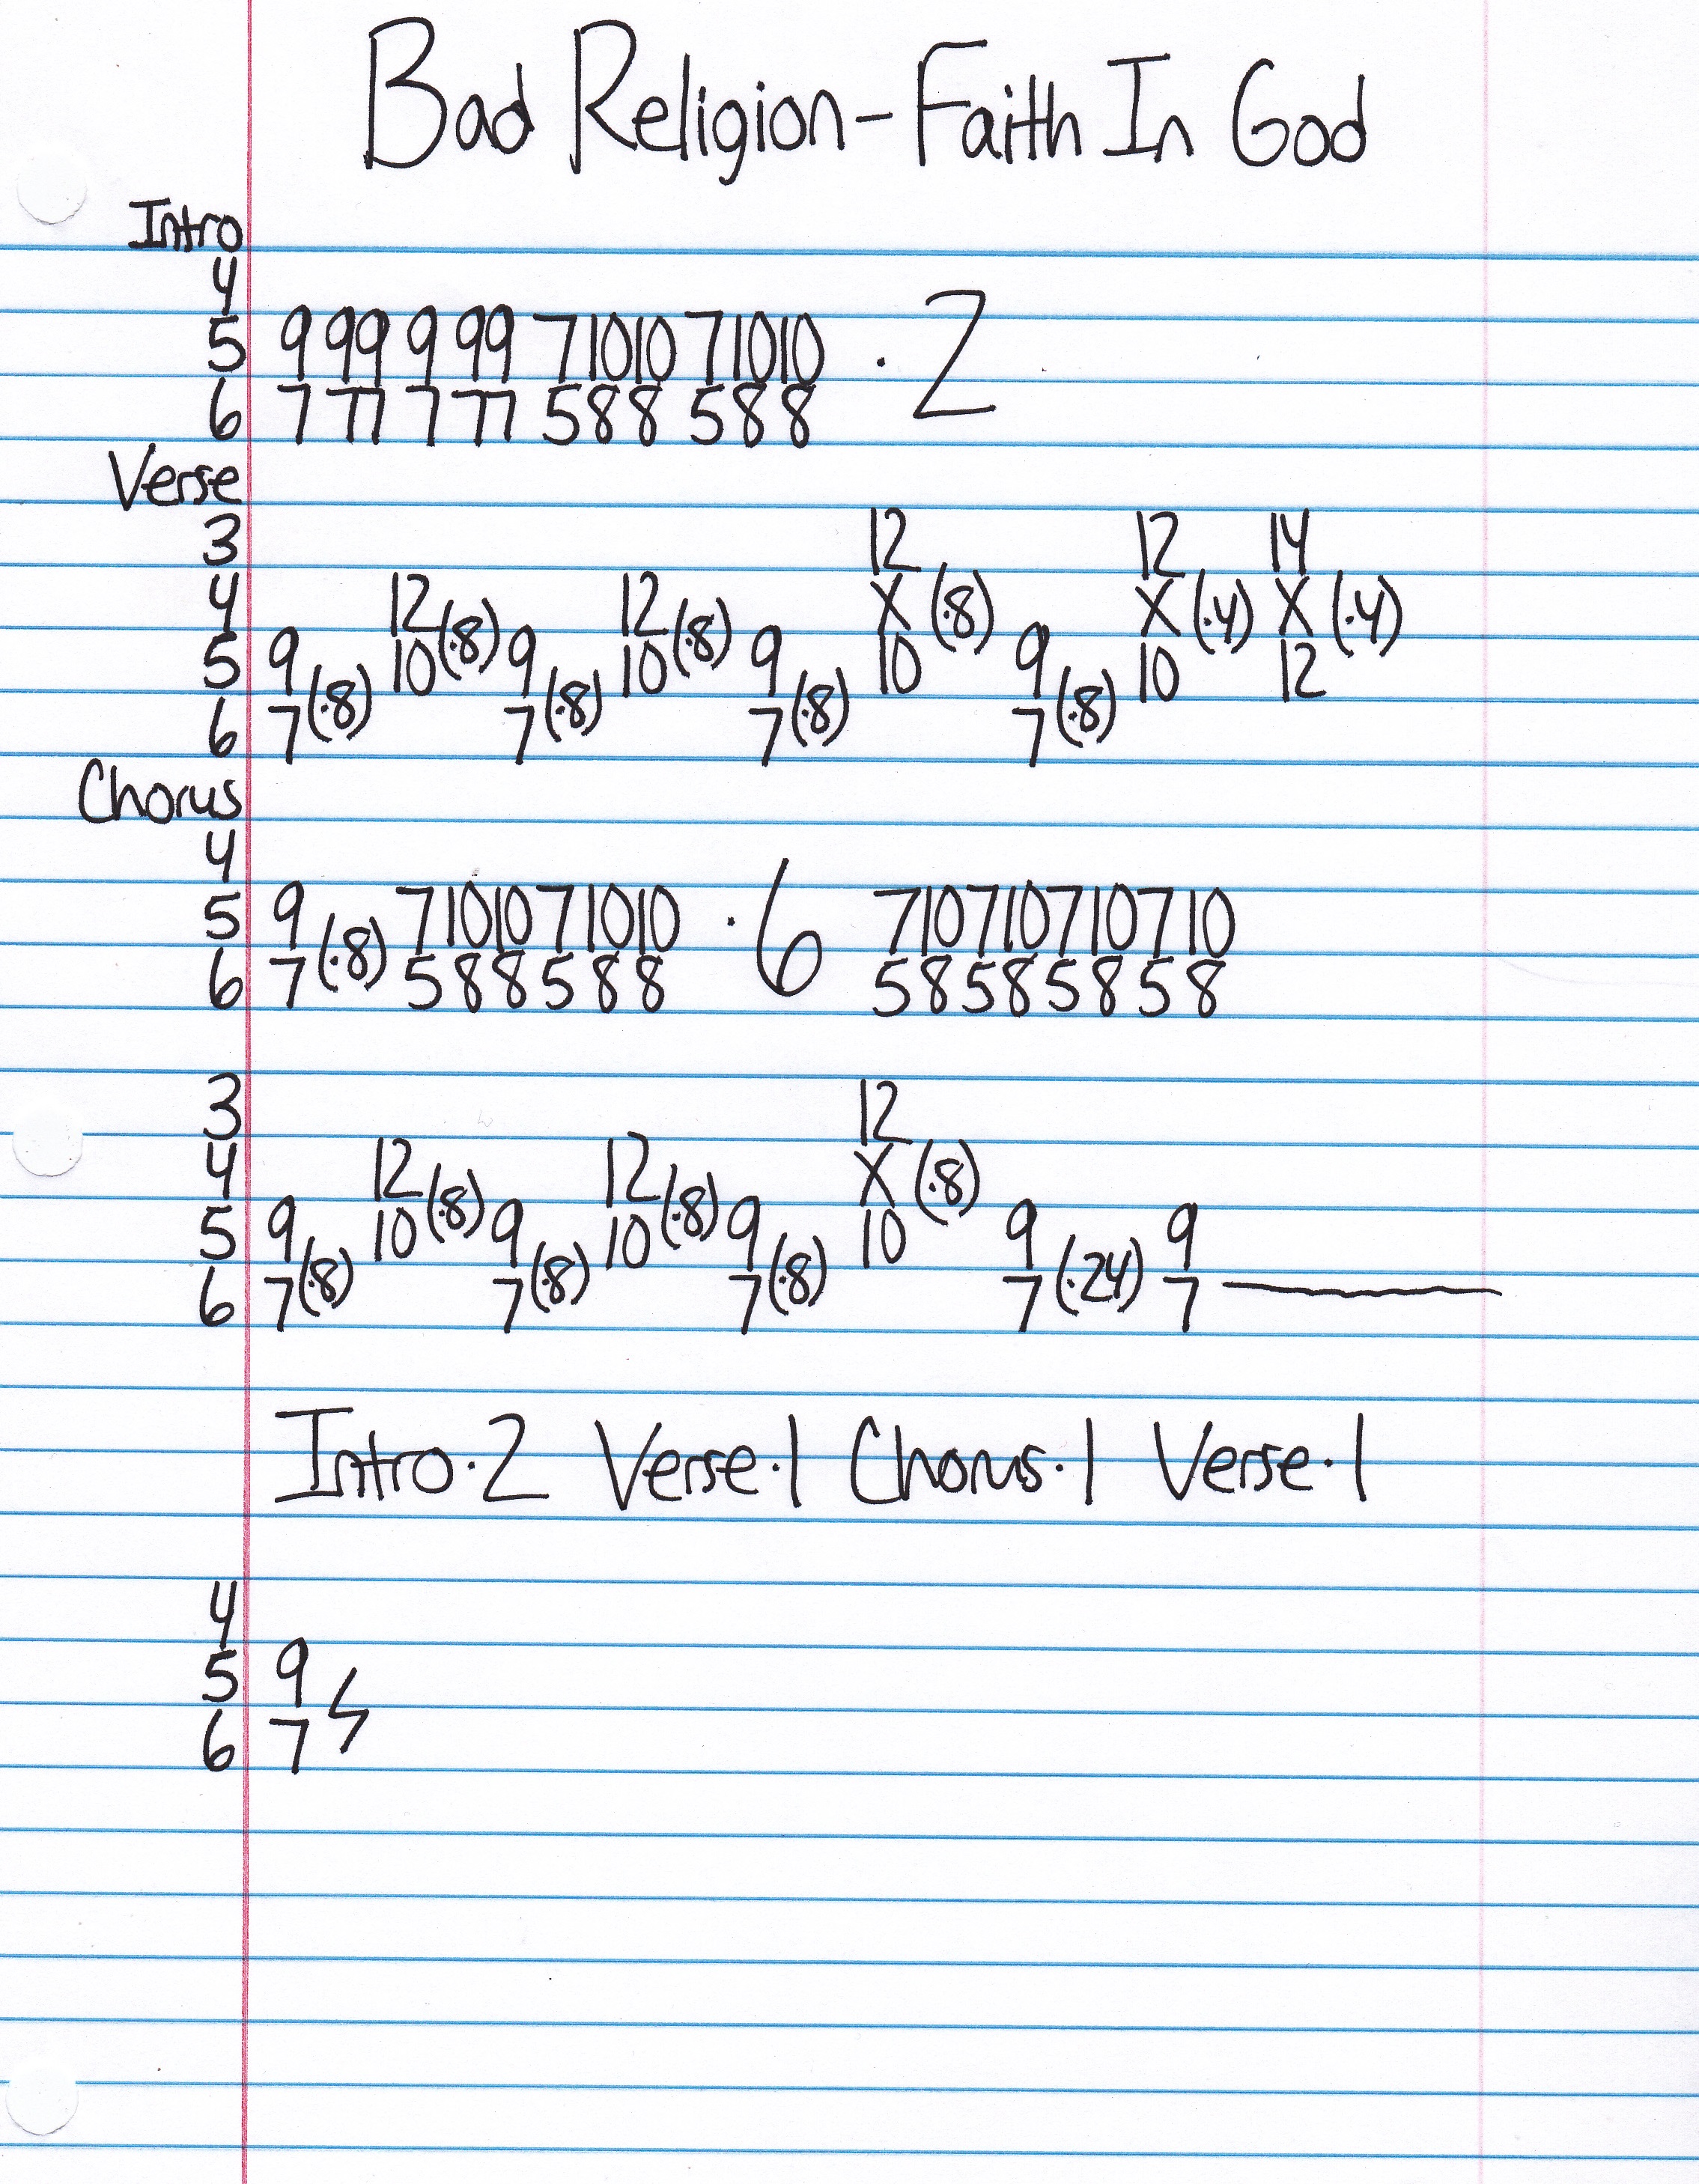 Bad Religion - Faith In God
Intro
4
5 9 99 9 99 7 10 10 7 10 10 · 2
6 7 77 7 77 5 8 8 5 8 8
Verse
3 12 12 14
4 12 (·8) 12 (·8) X (·8) X (·4) X (·4)
5 9 10 9 10 9 10 9 10 12
6 7 (·8) 7 (·8) 7 (·8) 7 (·8)
Chorus
4
5 9 7 10 10 7 10 10 · 6 7 10 7 10 7 10 7 10
6 7 (·8) 5 8 8 5 8 8 5 8 5 8 5 8 5 8
3 12
4 12 (·8) 12 (·8) X (·8)
5 9 10 9 10 9 10 9 9
6 7 (·8) 7 (·8) 7 (·8) 7 (·24) 7
Intro·2 Verse·1 Chorus·1 Verse·1
4
5 9
6 7